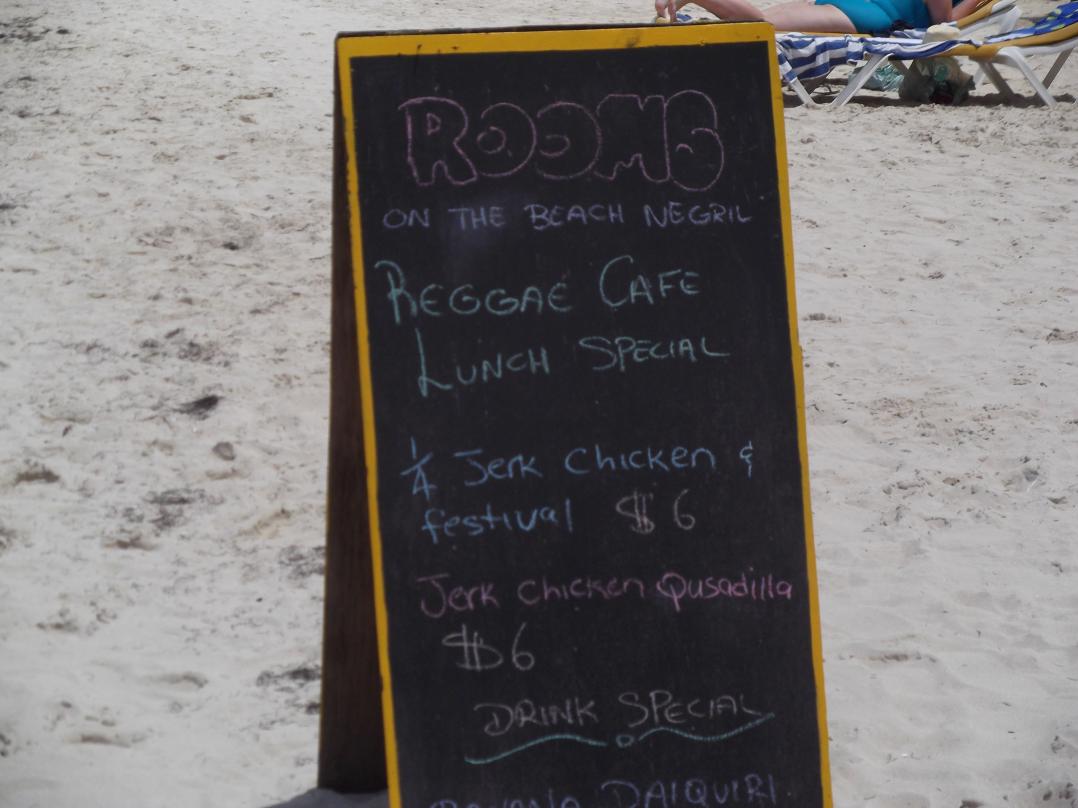 ROOMS
ON THE BEACH NEGRIL
REGGAE CAFE
LUNCH SPECIAL
1/4 Jerk Chicken &
festival $6
Jerk Chicken Qusadilla
$6
DRINK SPECIAL
DAIQUIRI